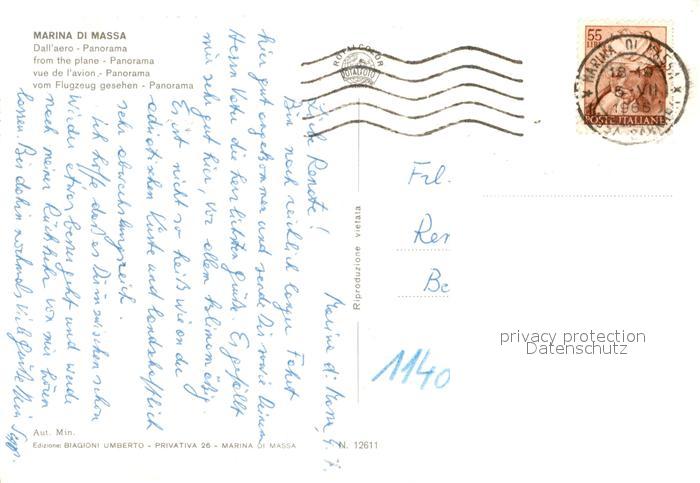 MARINA DI MASSA
Dall'aero - Panorama
from the plane - Panorama
vue de l'avion - Panorama
vom Flugzeug gesehen - Panorama
ROTALCOLOR
ROTALFOTO
55
LIRE
MARINA DI MASSA
18-19
1965
POSTE ITALIANE
Marina di Massa, 4. 7.
Liebe Renate!
Bin nach reichlich langer Fahrt
hier gut angekommen und sende Dir sowie Deinem
Herrn Vater die herzlichsten Grüße. Es gefällt
mir sehr gut hier, vor allem klimamäßig.
Es ist nicht so heiß wie an der
adriatischen Küste und landschaftlich
sehr abwechslungsreich.
Ich hoffe daß es Dir inzwischen schon
wieder etwas besser geht und werde
nach meiner Rückkehr von mir hören
lassen. Bis dahin nochmals viele Grüße Dein Sepp.
Riproduzione vietata
Frl.
Ren
Be
1140
privacy protection
Datenschutz
Aut. Min.
Edizione: BIAGIONI UMBERTO - PRIVATIVA 26 - MARINA DI MASSA
N. 12611